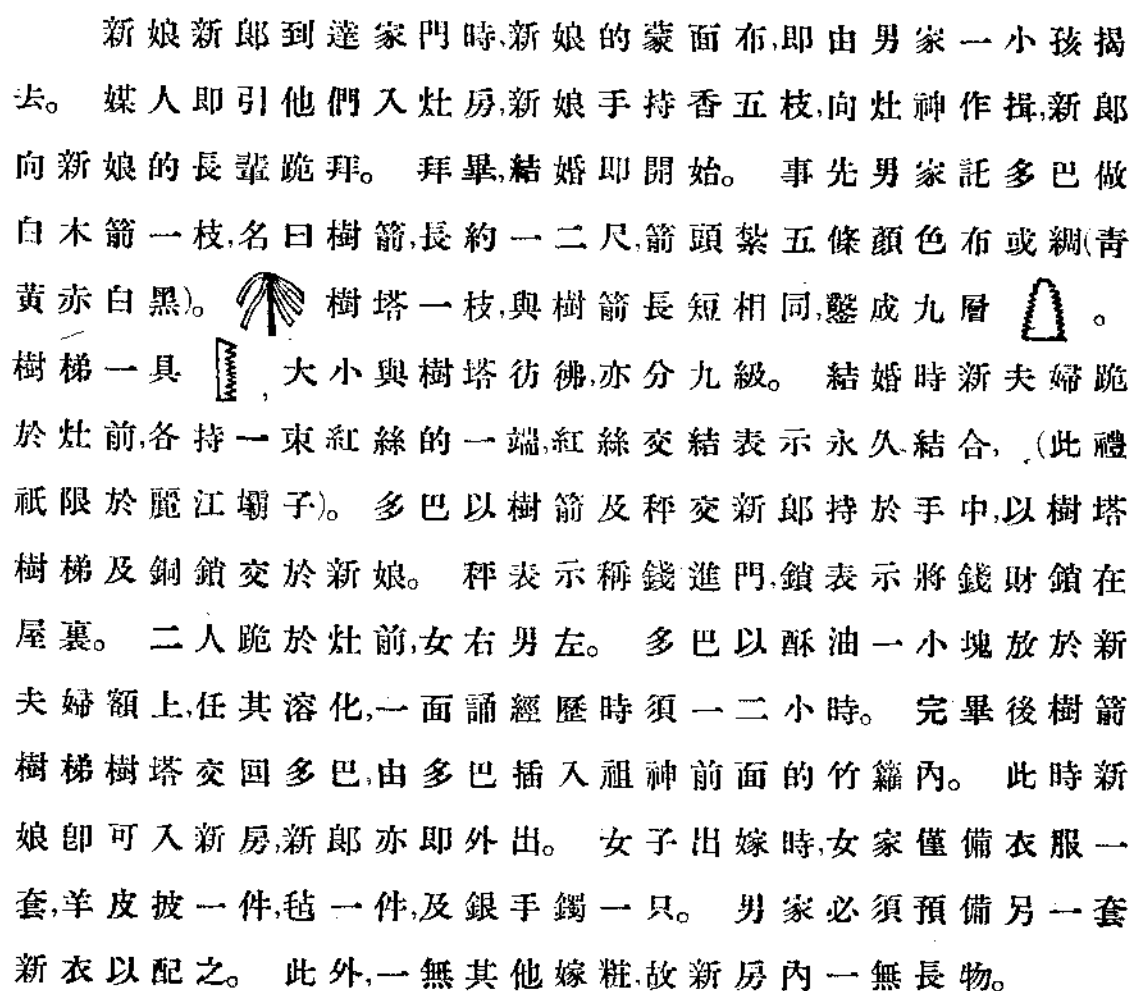 新娘新郎到達家門時,新娘的蒙面布,即由男家一小孩揭
去。 媒人即引他們入灶房,新娘手持香五枝,向灶神作揖,新郎
向新娘的長輩跪拜。 拜畢,結婚即開始。 事先男家託多巴做
白木箭一枝,名曰樹箭,長約一二尺,箭頭紮五條顏色布或綢(青
黃赤白黑)。 樹塔一枝,與樹箭長短相同,鑿成九層 。
樹梯一具 , 大小與樹塔彷彿,亦分九級。 結婚時新夫婦跪
於灶前,各持一束紅絲的一端,紅絲交結表示永久結合, (此禮
祇限於麗江壩子)。 多巴以樹箭及秤交新郎持於手中,以樹塔
樹梯及銅鎖交於新娘。 秤表示稱錢進門,鎖表示將錢財鎖在
屋裏。 二人跪於灶前,女右男左。 多巴以酥油一小塊放於新
夫婦額上,任其溶化,一面誦經歷時須一二小時。 完畢後樹箭
樹梯樹塔交回多巴,由多巴插入祖神前面的竹籮內。 此時新
娘卽可入新房,新郎亦即外出。 女子出嫁時,女家僅備衣服一
套,羊皮披一件,毡一件,及銀手鐲一只。 男家必須預備另一套
新衣以配之。 此外,一無其他嫁粧,故新房內一無長物。